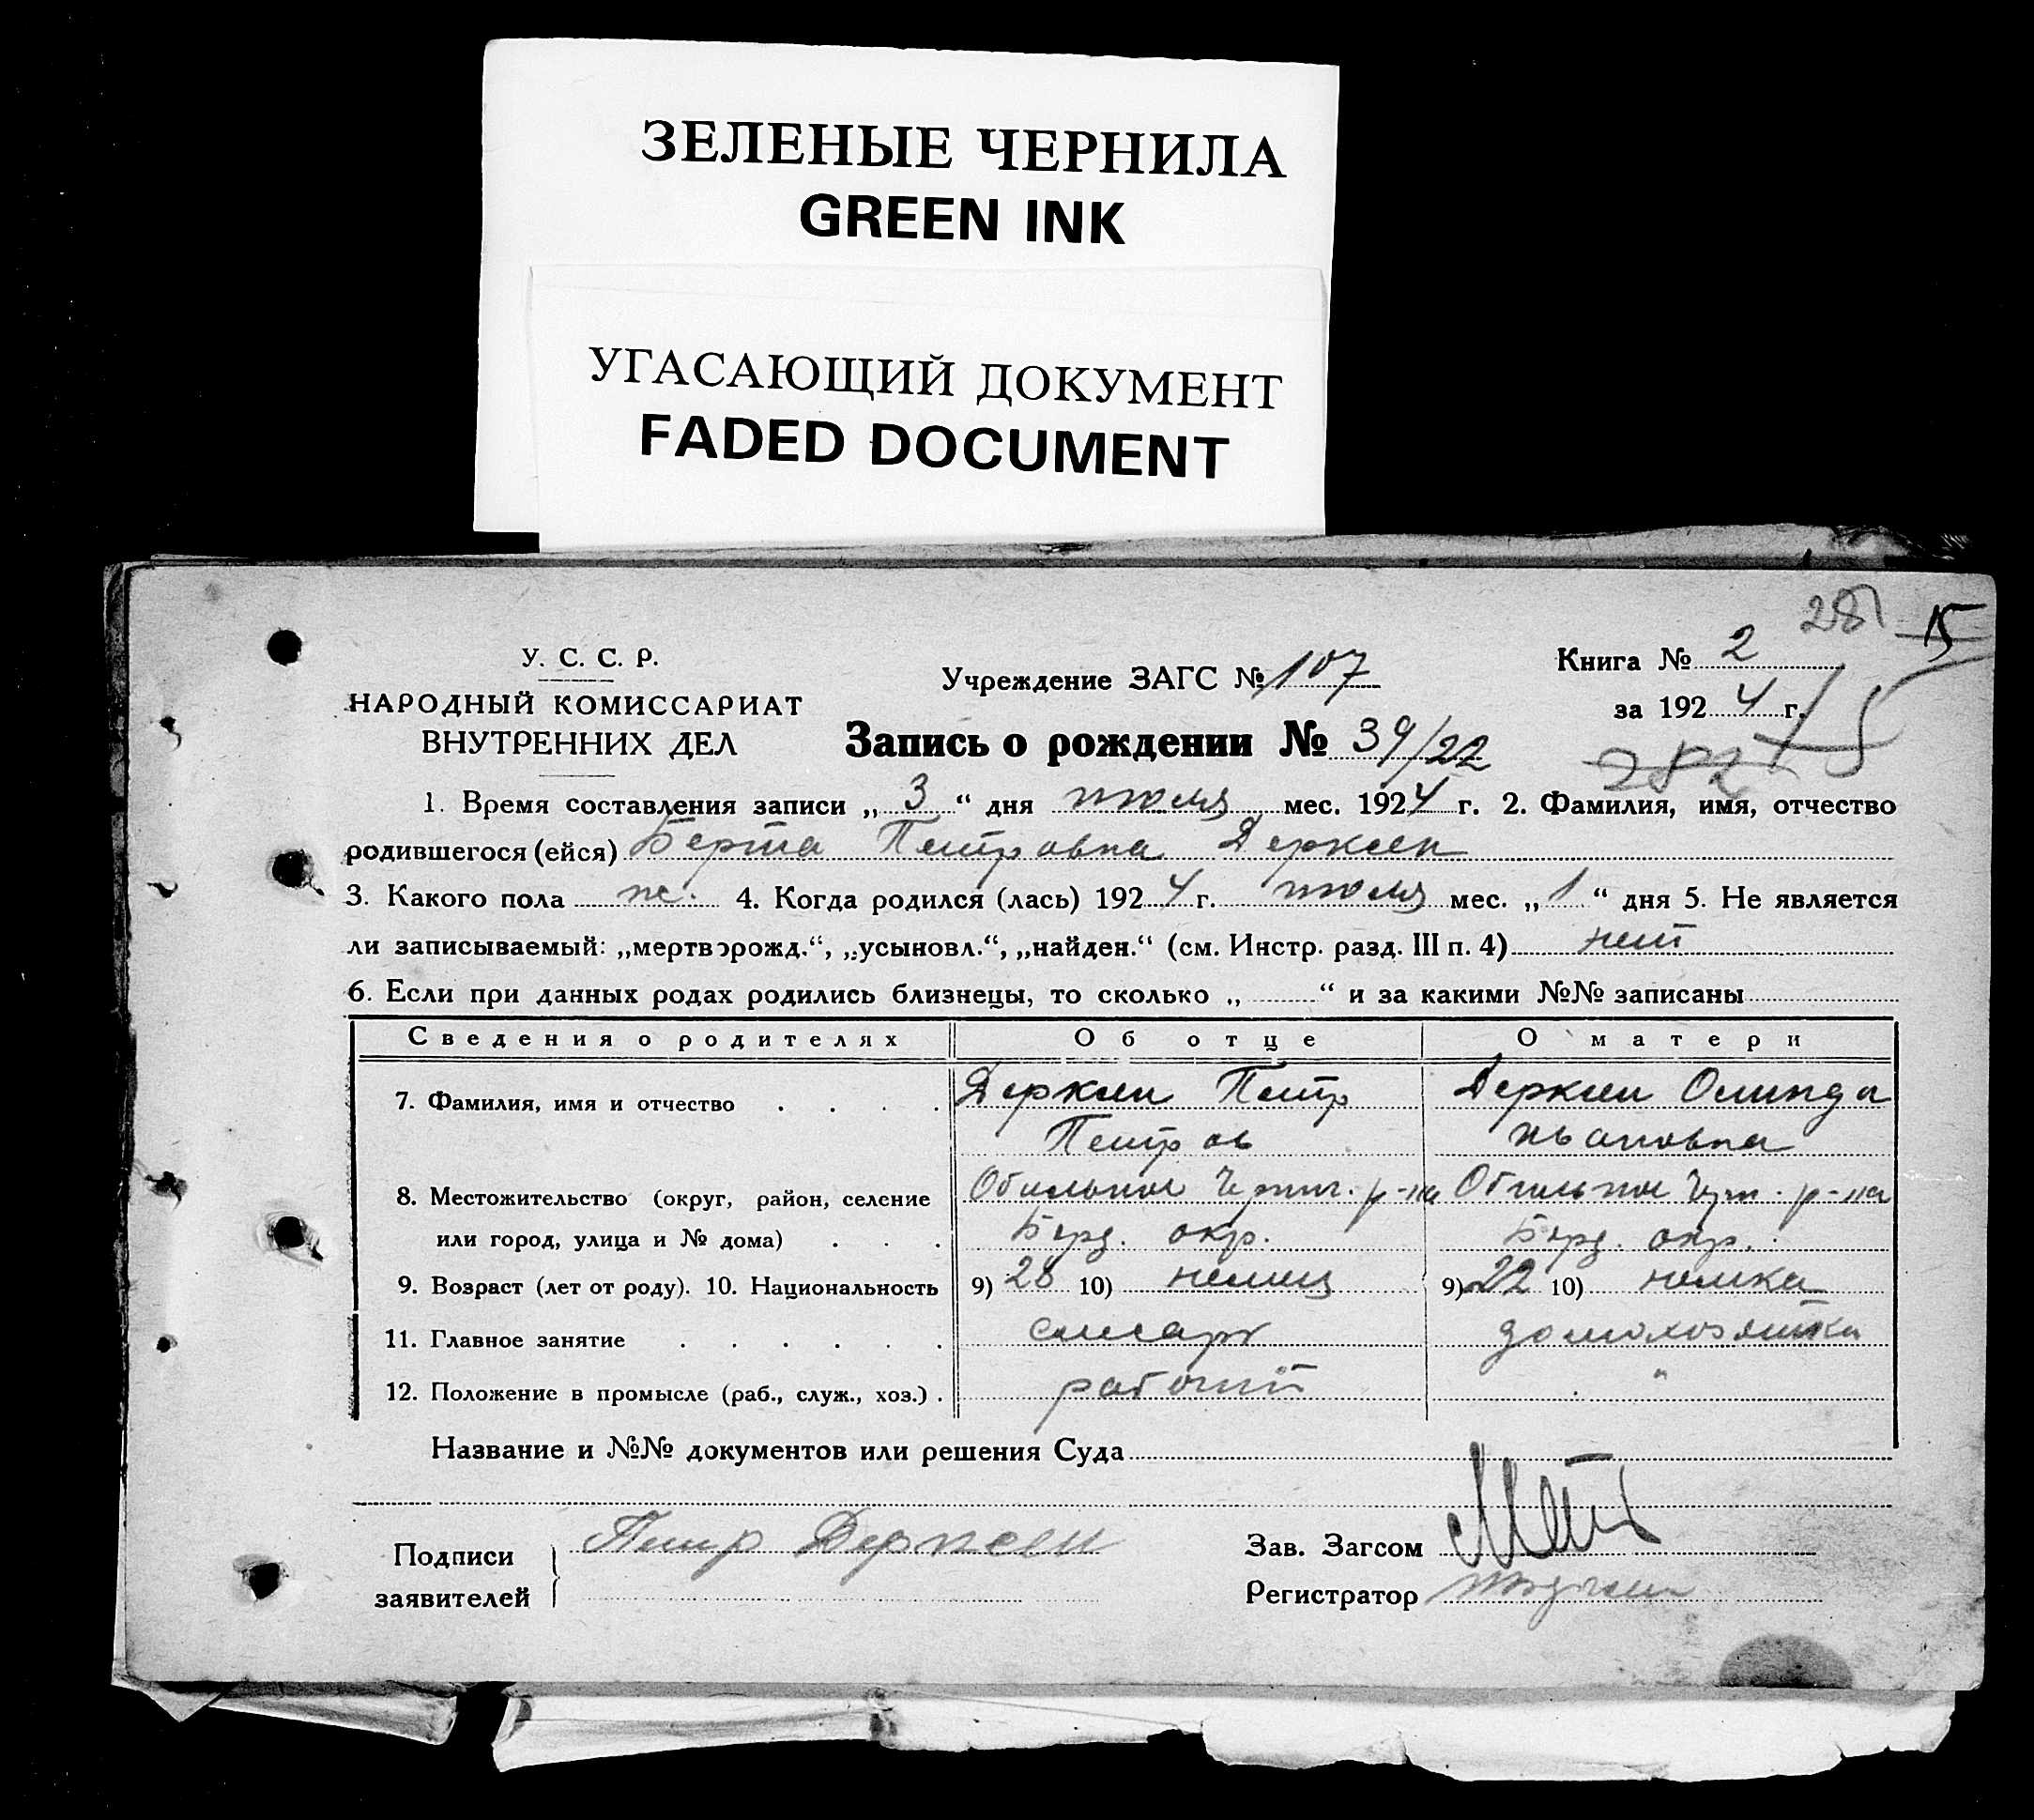 ЗЕЛЕНЫЕ ЧЕРНИЛА
GREEN INK
УГАСАЮЩИЙ ДОКУМЕНТ
FADED DOCUMENT
281 15
У. С. С. Р.
НАРОДНЫЙ КОМИССАРИАТ
ВНУТРЕННИХ ДЕЛ
Учреждение ЗАГС № 107
Запись о рождении № 39/22
Книга № 2
за 1924 г. 15
282
1. Время составления записи „ 3 “ дня июля мес. 1924 г. 2. Фамилия, имя, отчество
родившегося (ейся) Берта Петровна Дерксен
3. Какого пола ж. 4. Когда родился (лась) 1924 г. июля мес. „ 1 “ дня 5. Не является
ли записываемый: „мертворожд.“, „усыновл.“, „найден.“ (см. Инстр. разд. III п. 4) нет
6. Если при данных родах родились близнецы, то сколько „ “ и за какими №№ записаны
Сведения о родителях Об отце О матери
7. Фамилия, имя и отчество Дерксен Петр Дерксен Олинда
Петров Ивановна
8. Местожительство (округ, район, селение Обильное Черниг. р-на Обильное Черн. р-на
или город, улица и № дома) Берд. окр. Берд. окр.
9. Возраст (лет от роду). 10. Национальность 9) 28 10) немец 9) 22 10) немка
11. Главное занятие слесарь домохозяйка
12. Положение в промысле (раб., служ., хоз.) рабочий "
Название и №№ документов или решения Суда
Подписи заявителей Петр Дерксен
Зав. Загсом
Регистратор